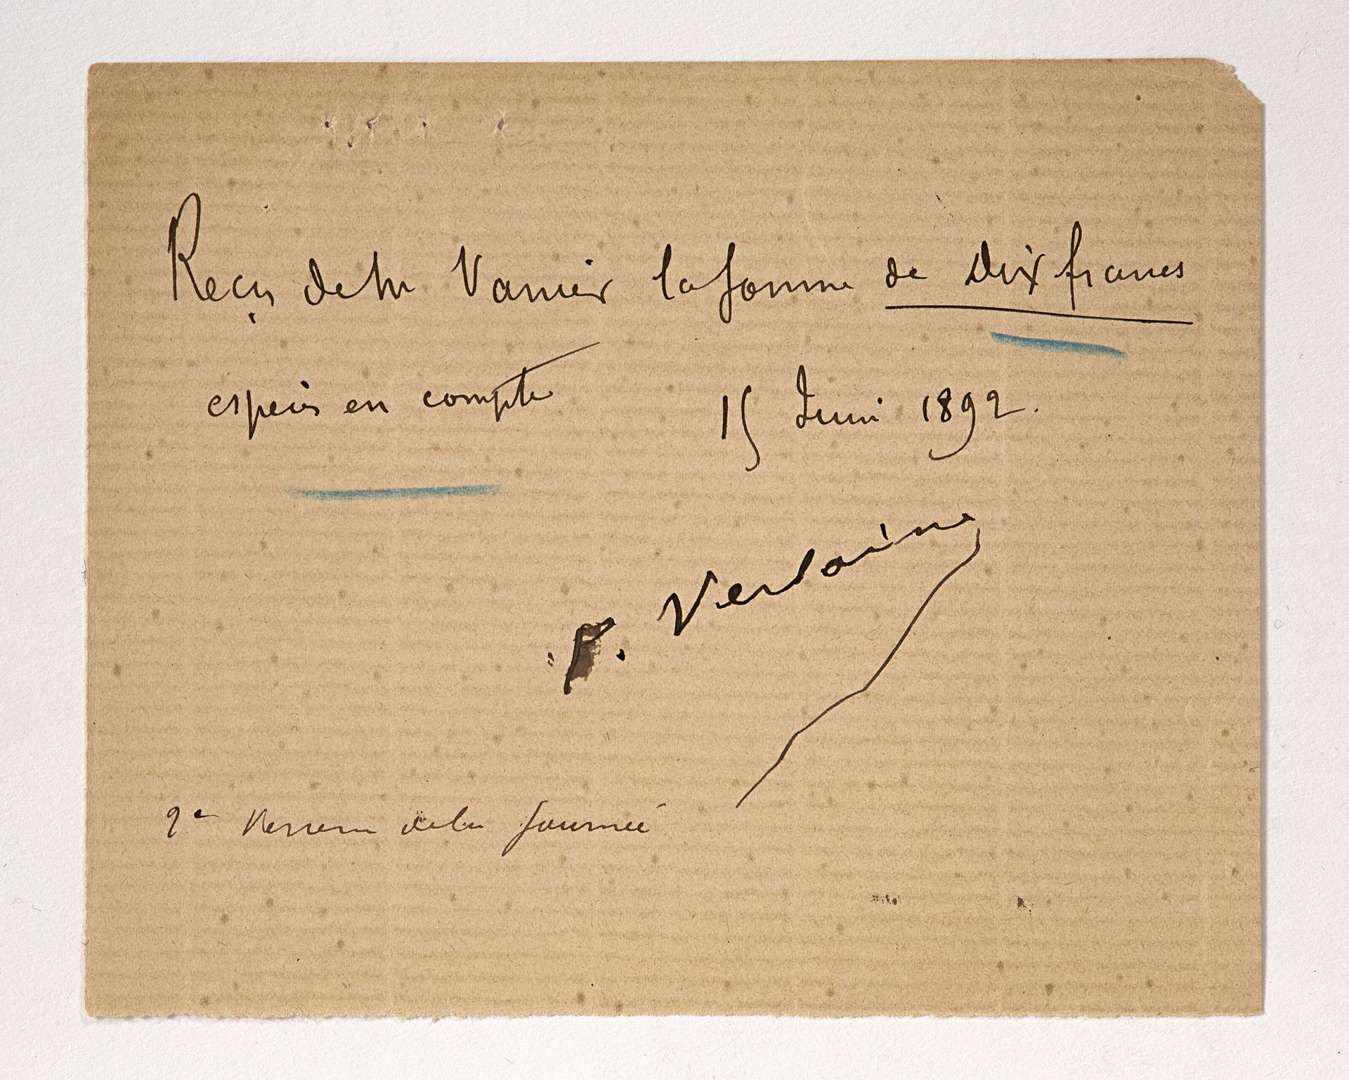 Reçu de M Vanier la somme de Dix francs
espèces en compte 15 Juin 1892.
P. Verlaine
2e Versemt de la journée